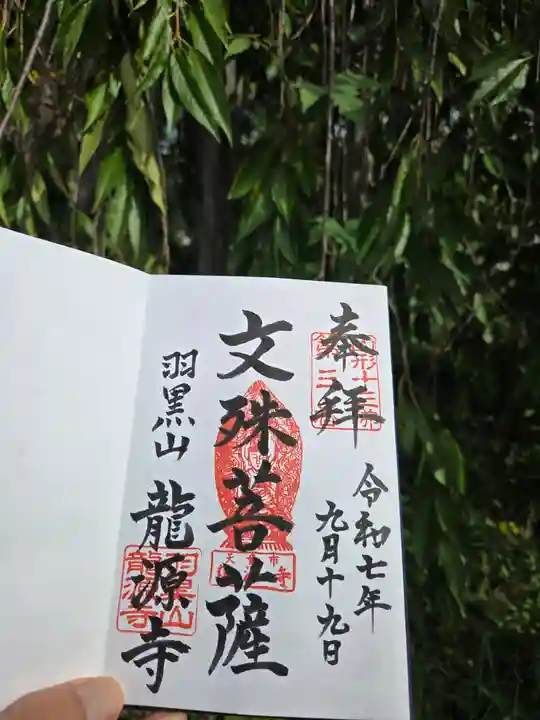 奉拝
令和七年
九月十九日
文殊菩薩
羽黒山
龍源寺